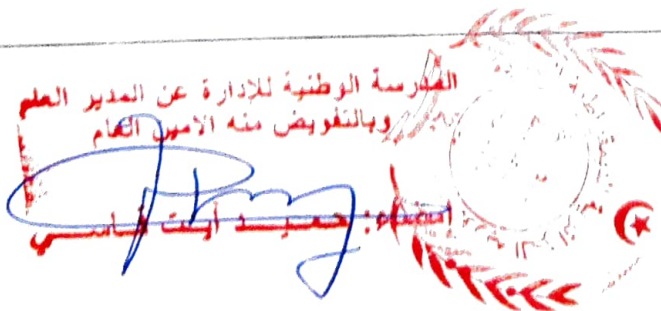 المدرسة الوطنية للإدارة عن المدير العلم
وبالتفويض منه الامين العام
امضاء: حميد أيت قاسي